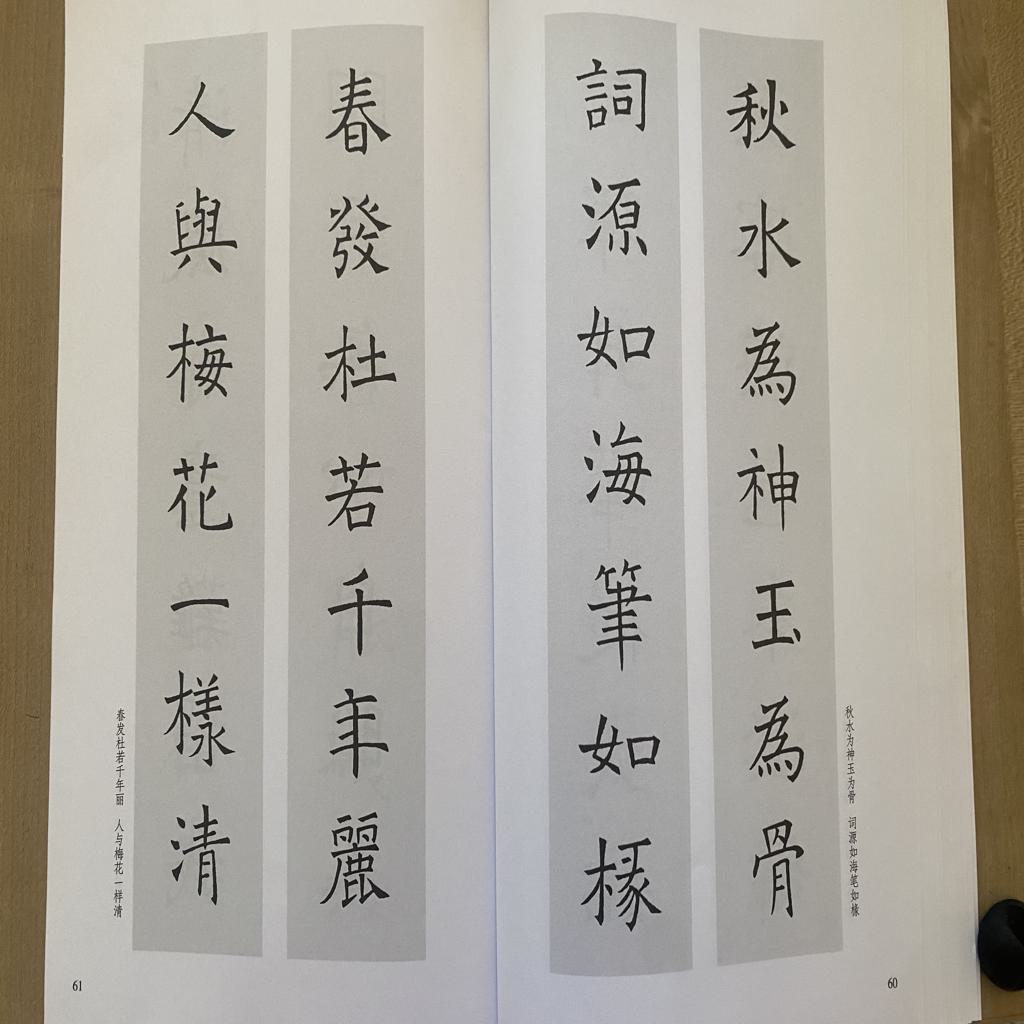 秋水為神玉為骨
詞源如海筆如椽
秋水为神玉为骨 词源如海笔如椽
60
春發杜若千年麗
人與梅花一樣清
春发杜若千年丽 人与梅花一样清
61